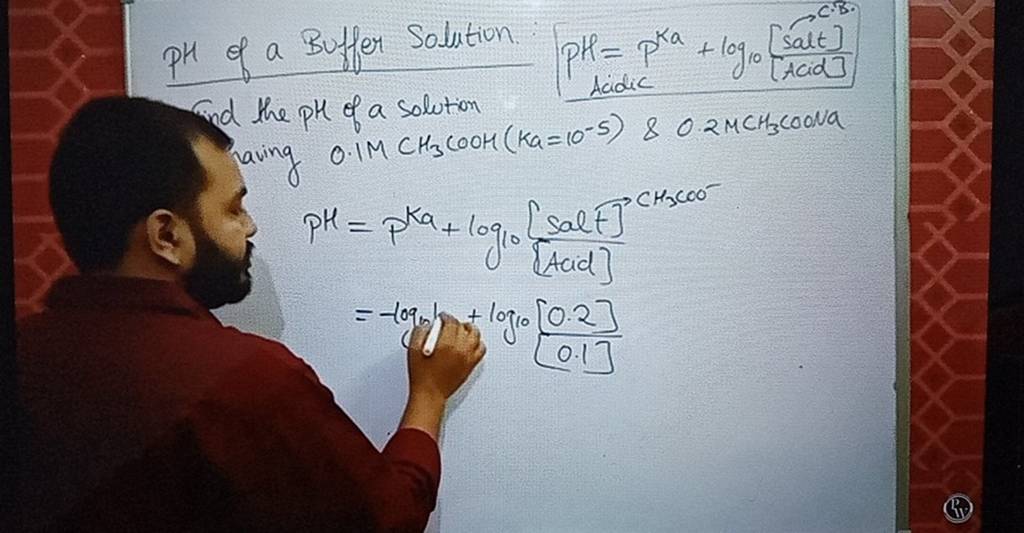 pH of a Buffer Solution :
pH = pKa + log10 [Salt] → C.B.
[Acid]
Acidic
Find the pH of a solution
having 0.1M CH3COOH (Ka=10-5) & 0.2M CH3COONa
pH = pKa + log10 [Salt] → CH3COO-
[Acid]
= -log10 + log10 [0.2]
[0.1]
PW